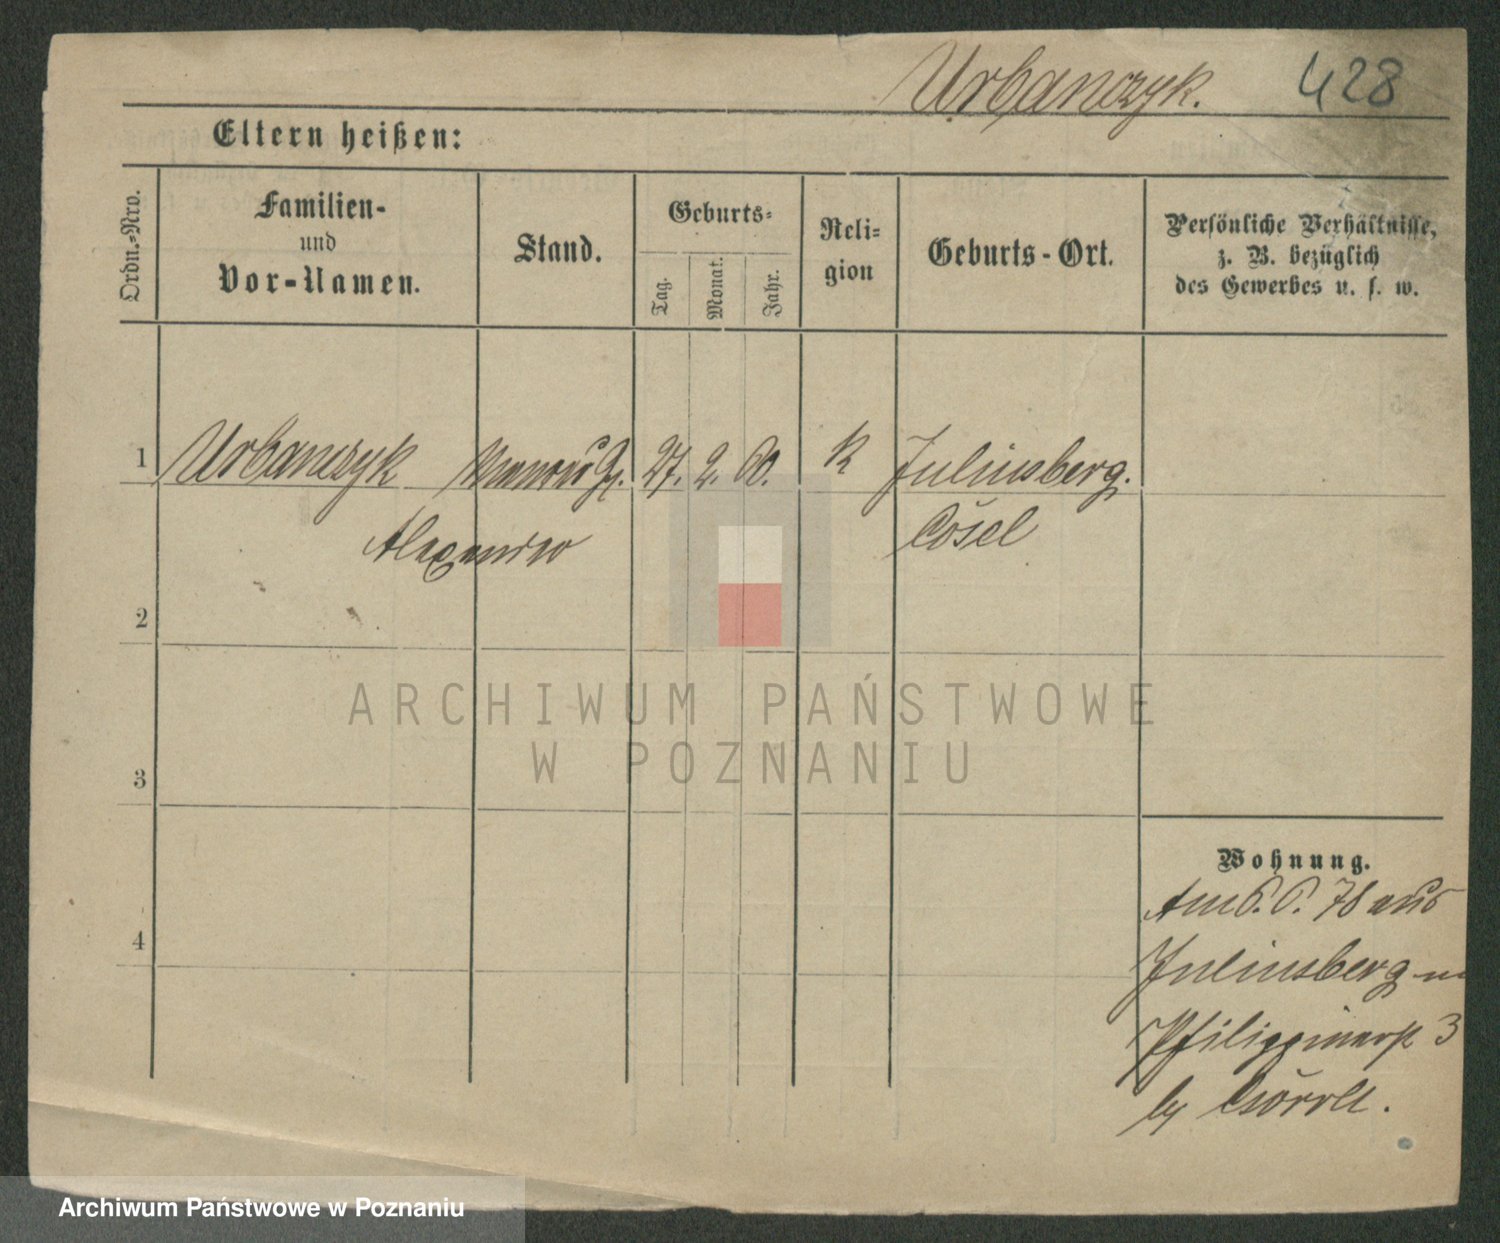 Urbanczyk. 428
Eltern heißen:
Ordn.-Nro.
Familien-
und
Vor-Namen.
Stand.
Geburts-
Tag.
Monat.
Jahr.
Reli-
gion
Geburts-Ort.
Persönliche Verhältnisse,
z. B. bezüglich
des Gewerbes u. s. w.
1 Urbanczyk 27. 2. 60. K Juliusberg.
Alexander Cosel
2
3
4
ARCHIWUM PAŃSTWOWE
W POZNANIU
Wohnung.
Am 6. 6. 78 aus
Juliusberg n
3
by
Archiwum Państwowe w Poznaniu